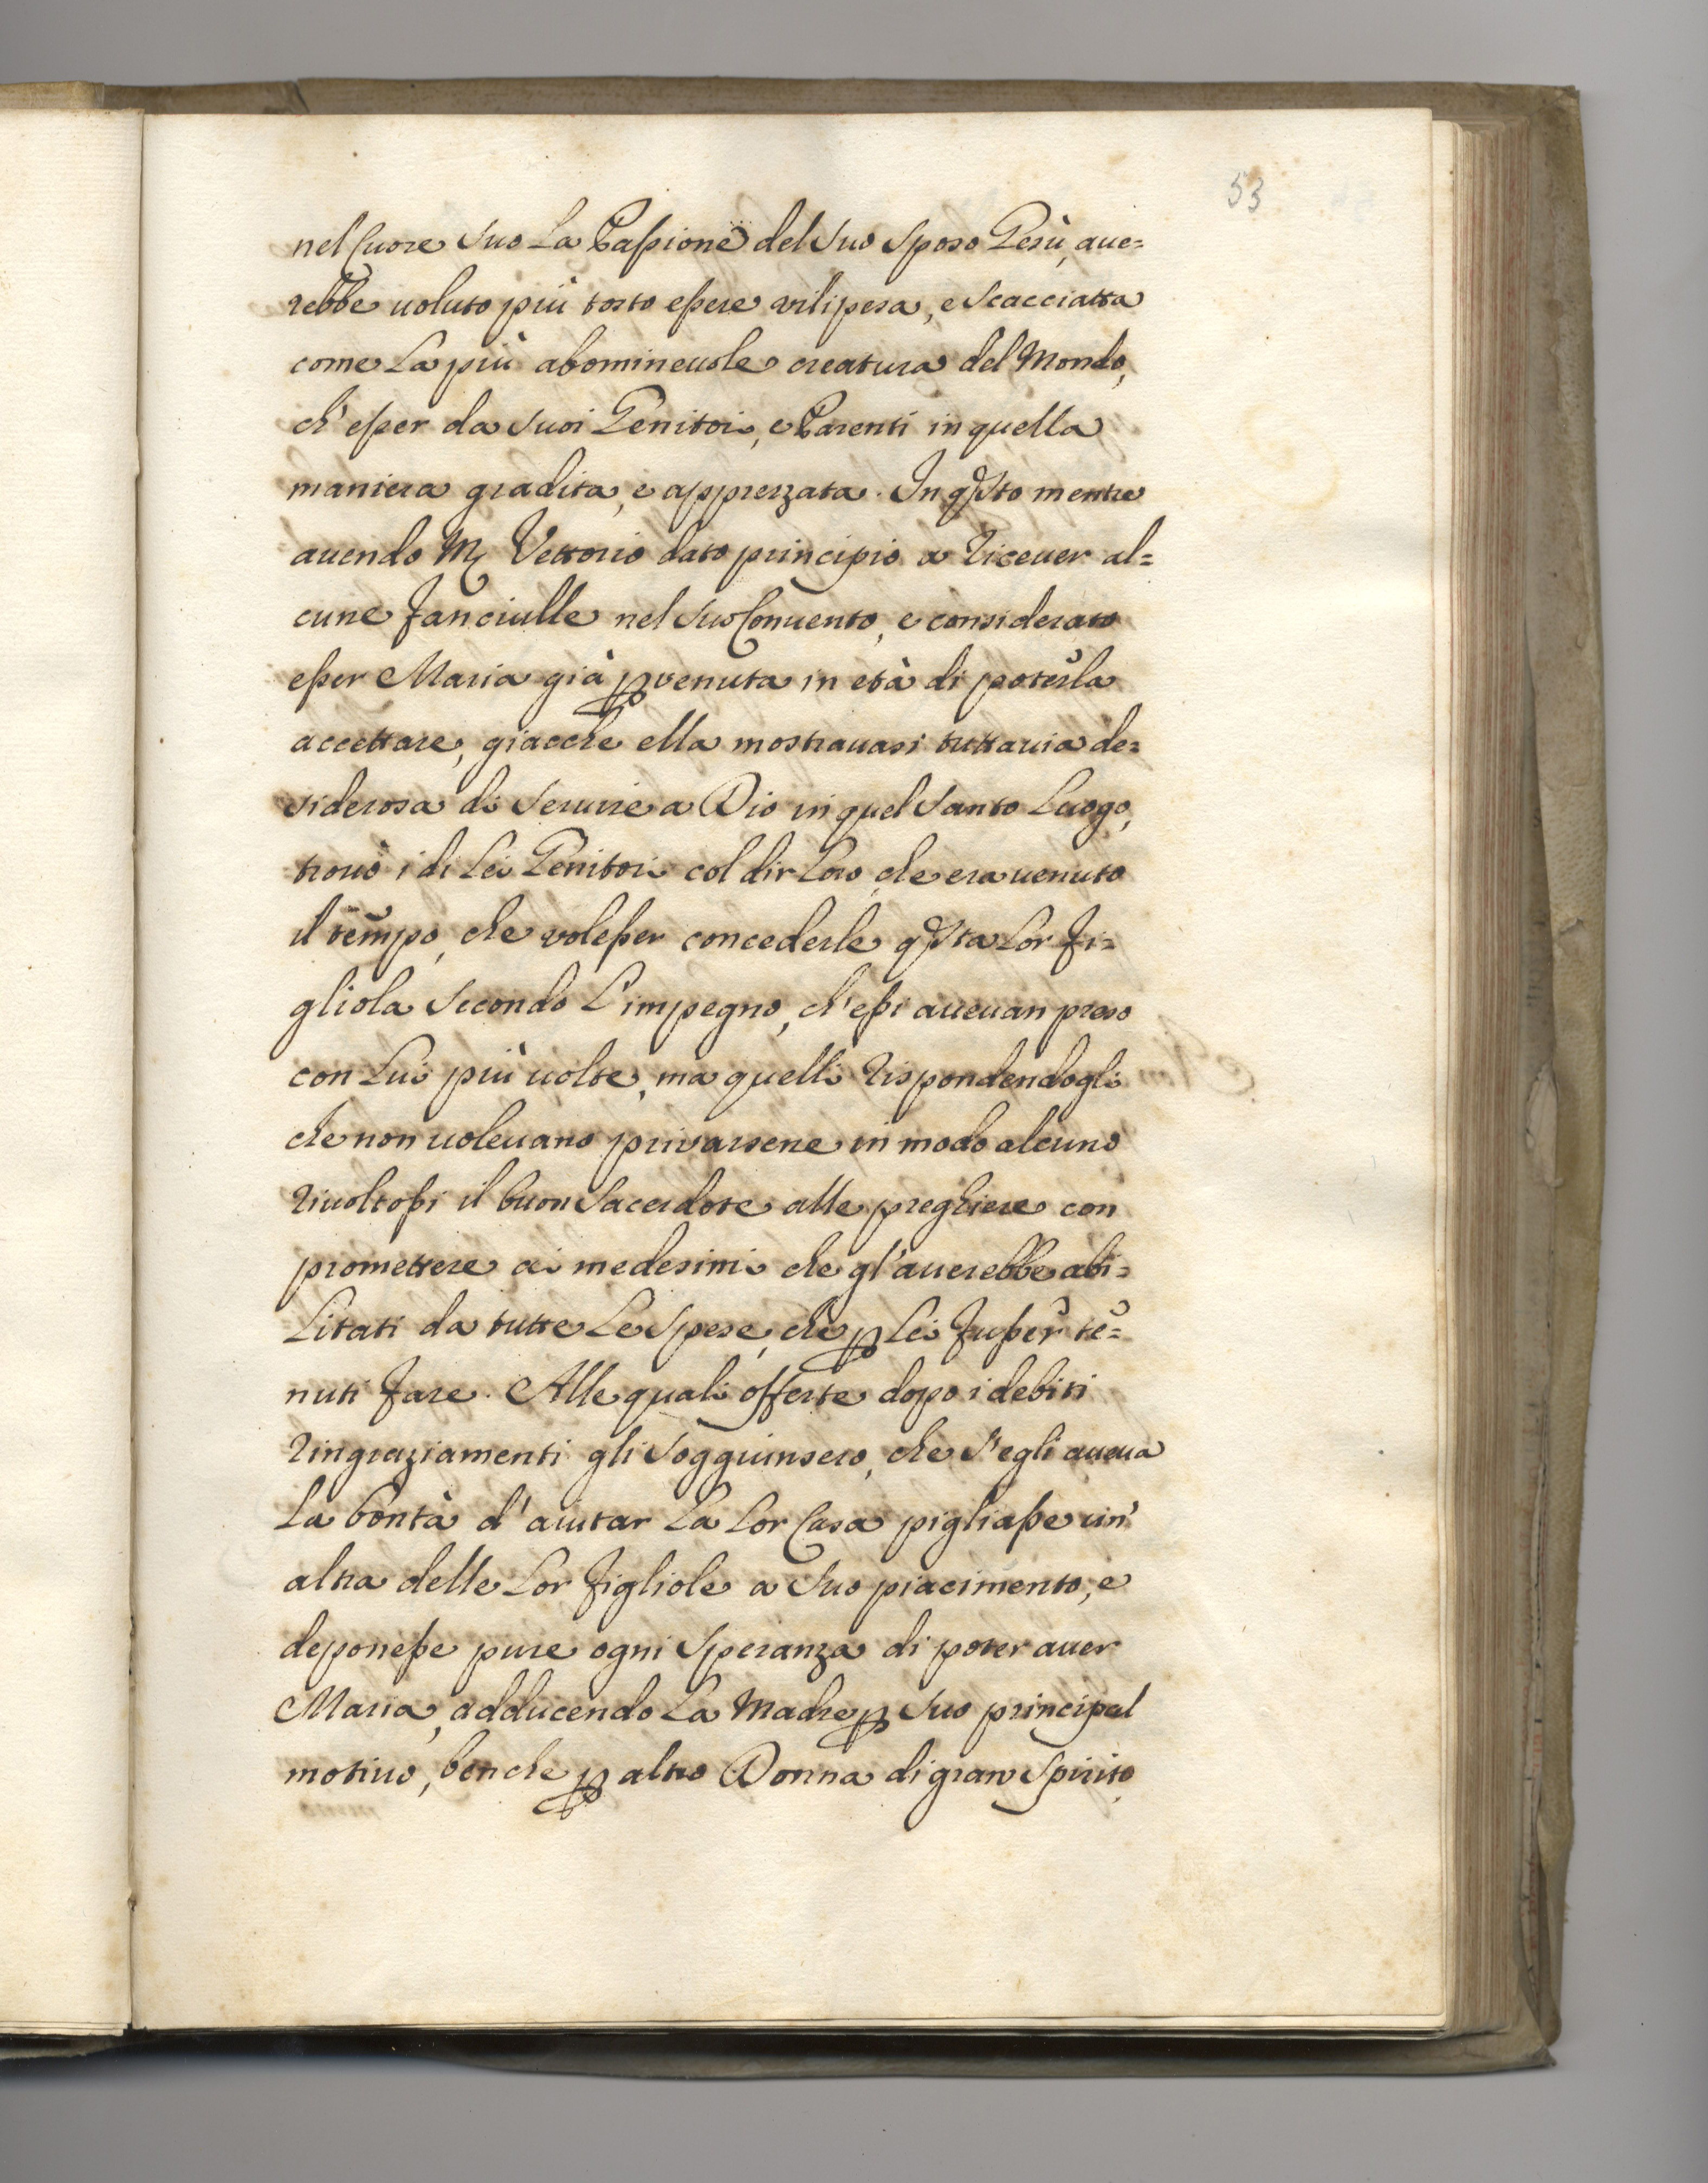 53
nel Cuore suo la Passione del suo Sposo Gesù, aue=
rebbe uoluto più tosto essere vilipesa, e scacciatta
come la più abomineuole creatura del Mondo,
ch'esser da suoi Genitori, e Parenti in quella
maniera gradita, e apprezzata. In qsto mentre
auendo M. Vettorio dato principio a riceuer al=
cune fanciulle nel suo Conuento, e considerato
esser Maria già pvenuta in età di poterla
accettare, giacchè ella mostrauasi tuttauia de=
siderosa di seruire a Dio in quel santo Luogo,
trouò i di lei Genitori col dir loro, che era uenuto
il tempo, che volesser concederle qsta lor fi=
gliola secondo l'impegno, ch'essi aueuan preso
con lui più uolte, ma quelli rispondendogli
che non uoleuano privarsene in modo alcuno
riuoltossi il buon Sacerdote alle preghiere con
promettere ai medesimi che gl'auerebbe abi=
litati da tutte le spese, che p lei fusser te=
nuti fare. Alle quali offerte dopo i debiti
ringraziamenti gli soggiunsero, che s'egli aueua
la bontà d'aiutar la lor Casa pigliasse un'
altra delle lor figliole a suo piacimento, e
deponesse pure ogni speranza di poter auer
Maria, adducendo la Madre p suo principal
motiuo, benche p altro Donna di gran Spirito,